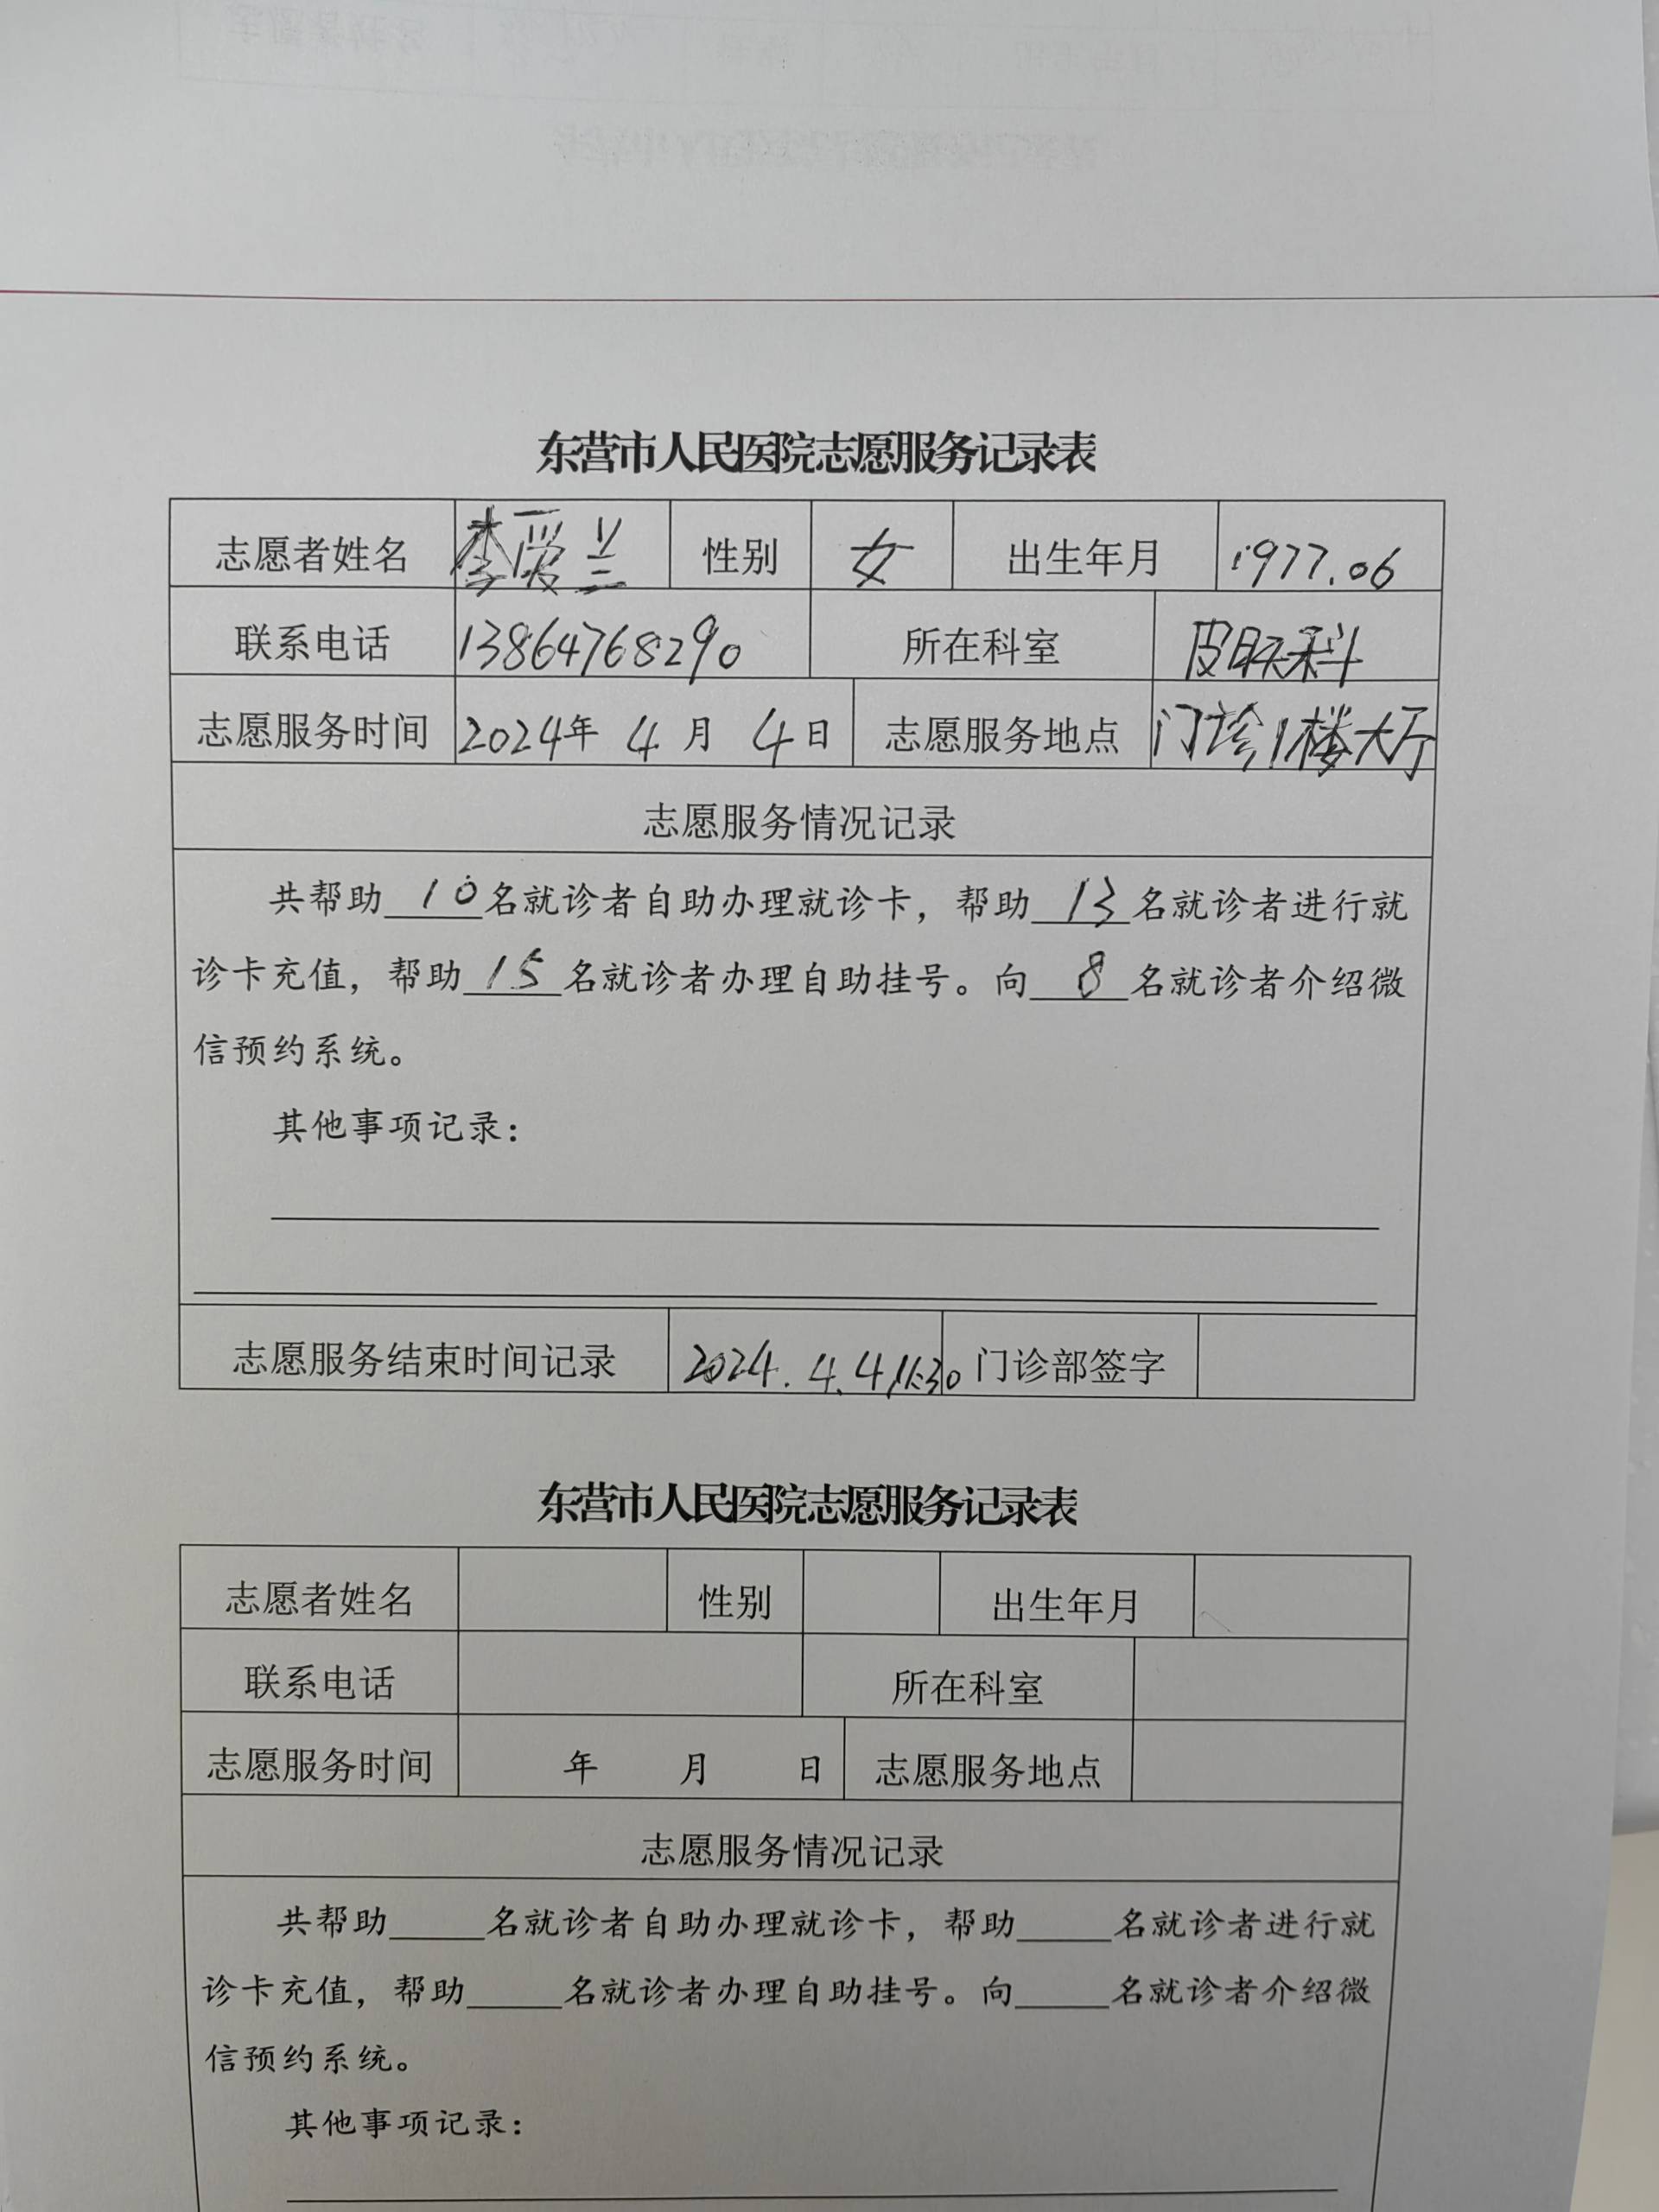 东营市人民医院志愿服务记录表
志愿者姓名 李爱兰 性别 女 出生年月 1977.06
联系电话 13864768290 所在科室 皮肤科
志愿服务时间 2024年 4月 4日 志愿服务地点 门诊1楼大厅
志愿服务情况记录
共帮助10名就诊者自助办理就诊卡，帮助13名就诊者进行就
诊卡充值，帮助15名就诊者办理自助挂号。向8名就诊者介绍微
信预约系统。
其他事项记录：
志愿服务结束时间记录 2024.4.4 11:30 门诊部签字
东营市人民医院志愿服务记录表
志愿者姓名 性别 出生年月
联系电话 所在科室
志愿服务时间 年 月 日 志愿服务地点
志愿服务情况记录
共帮助_____名就诊者自助办理就诊卡，帮助_____名就诊者进行就
诊卡充值，帮助_____名就诊者办理自助挂号。向_____名就诊者介绍微
信预约系统。
其他事项记录：